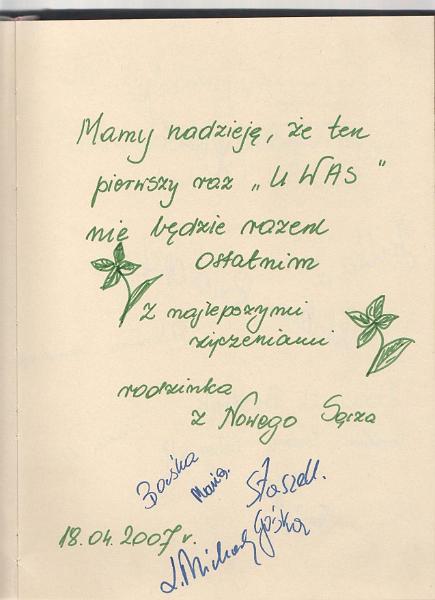 Mamy nadzieję, że ten
pierwszy raz „U WAS"
nie będzie razem
ostatnim
z najlepszymi
życzeniami
rodzinka
z Nowego Sącza
Maria.
Staszek.
18.04.2007 r.